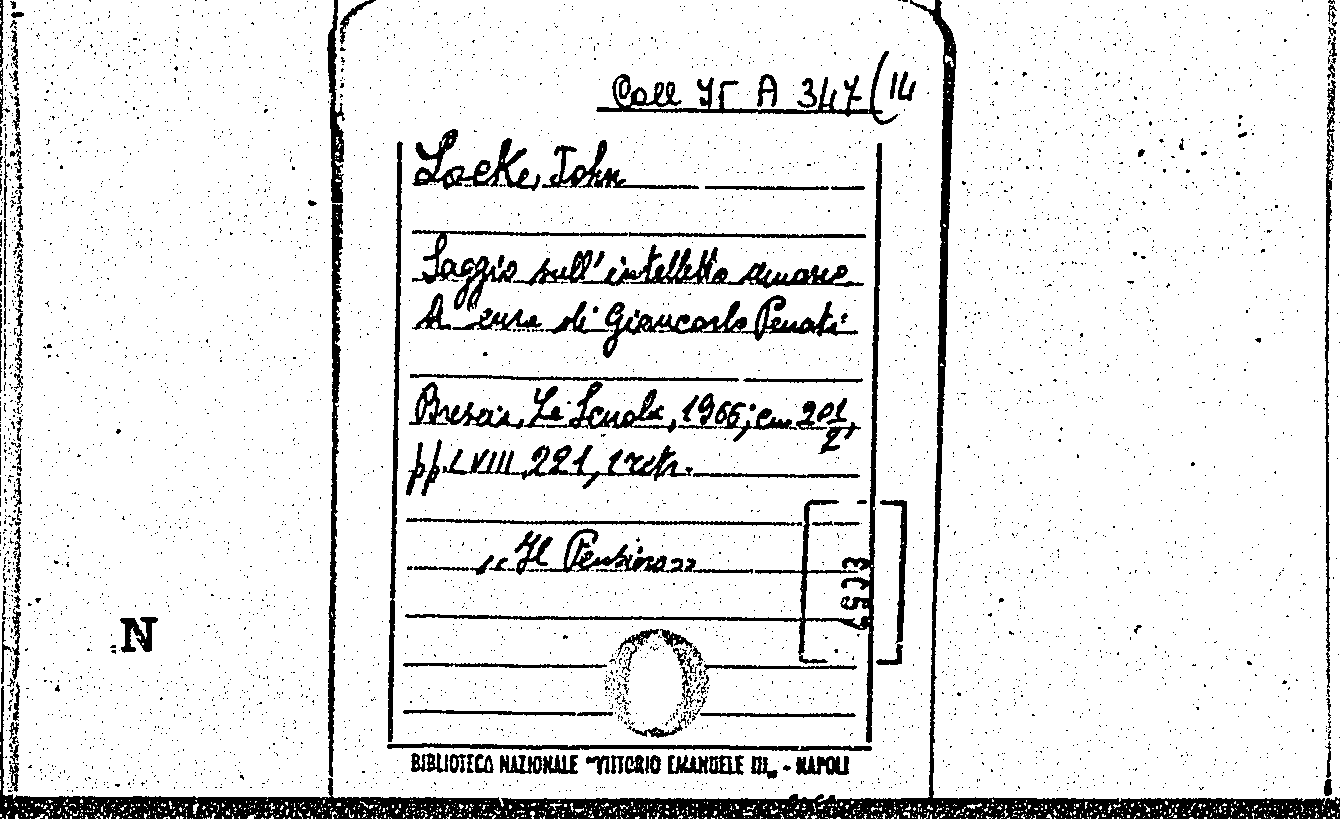 Coll It A 347 (14
Locke, John
Saggio sull'intelletto umano
A cura di Giancarlo Penati
Brescia, La Scuola, 1966; cm 20 1/2,
pp. LVIII 221, 1 retr.
"Il Pensiero"
N
BIBLIOTECA NAZIONALE "VITTORIO EMANUELE III„ - NAPOLI